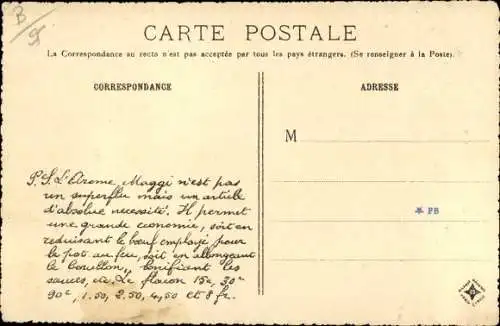 CARTE POSTALE
La Correspondance au recto n'est pas acceptée par tous les pays étrangers. (Se renseigner à la Poste).
CORRESPONDANCE
ADRESSE
M
P.S. L'Arome Maggi n'est pas
un superflu mais un article
d'absolue nécessité. Il permet
une grande économie, soit en
réduisant le bœuf employé pour
le pot au feu, soit en allongeant
le bouillon, bonifiant les
sauces, etc. Le flacon 15c, 30c
90c, 1.50, 2.50, 4,50 et 8 fr.
* PB